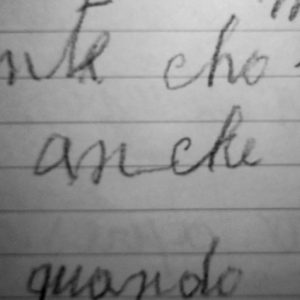 nte cho
anche
quando